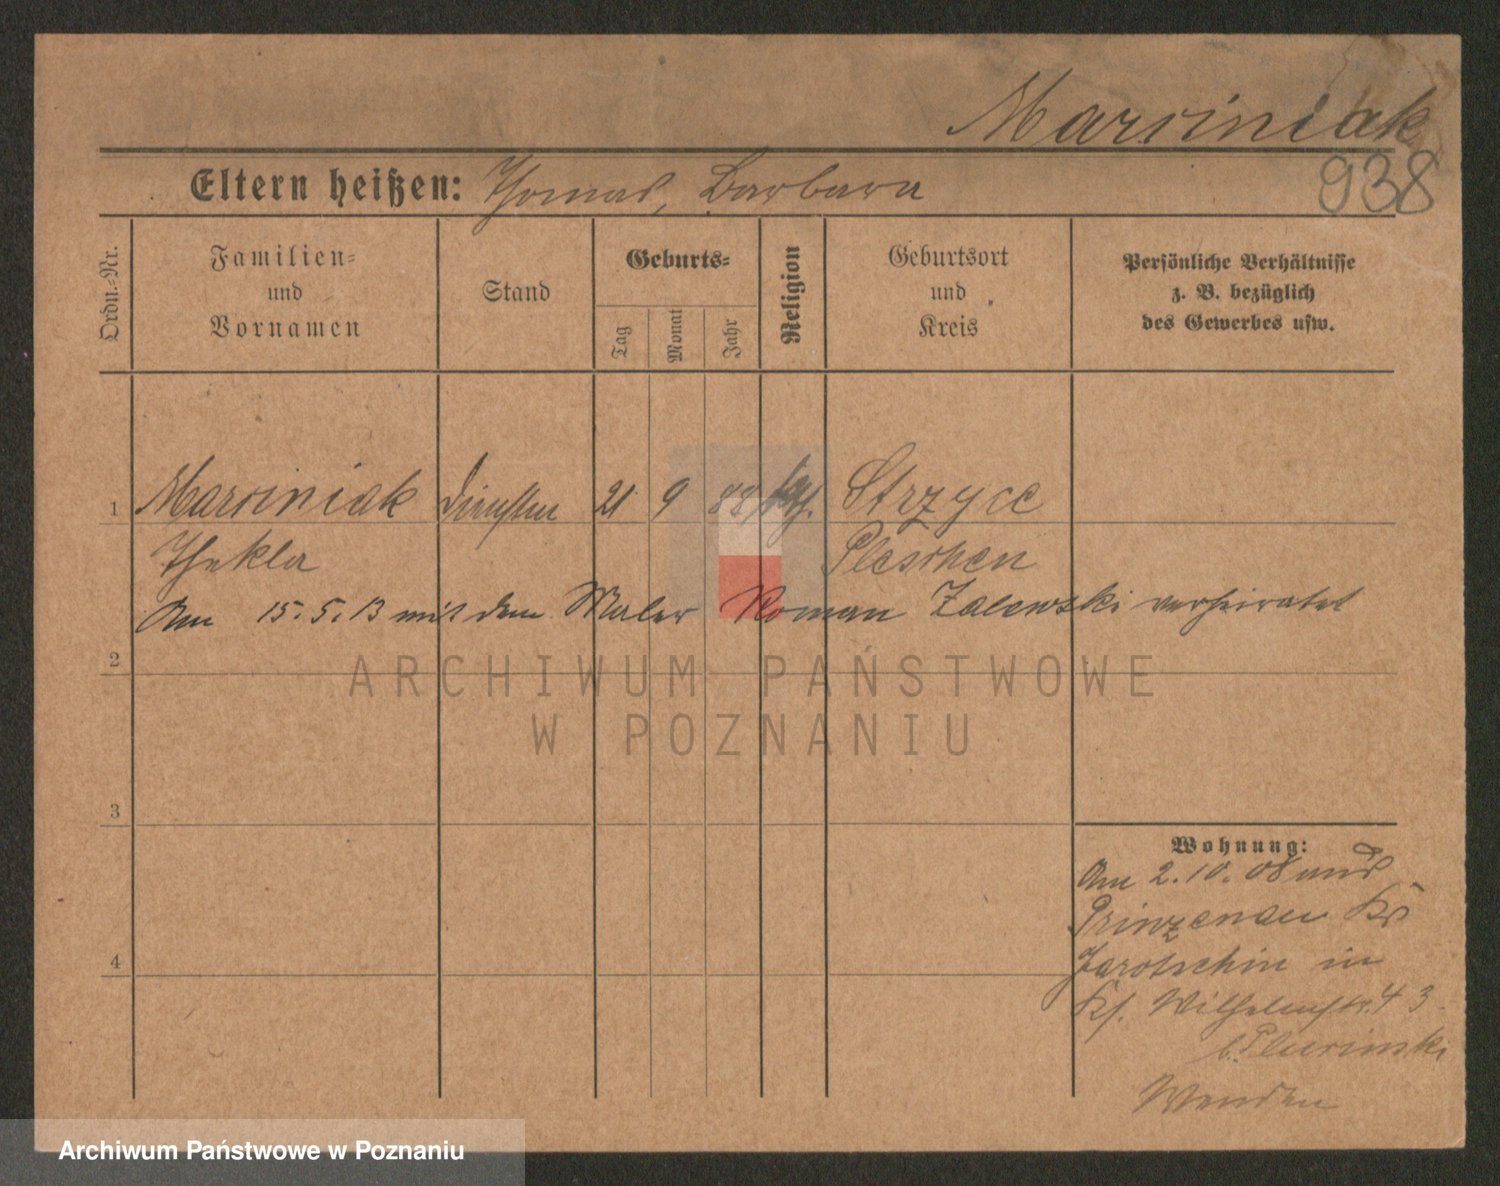 Marciniak
938
Eltern heißen: Thomas, Barbara
Ordn.-Nr.
Familien-
und
Vornamen
Stand
Geburts-
Tag
Monat
Jahr
Religion
Geburtsort
und
Kreis
Persönliche Verhältnisse
z. B. bezüglich
des Gewerbes usw.
1 Marciniak 21 9 88 kath. Strzyce
Thekla Pleschen
Am 15.5.13 mit dem Maler Roman Zalewski verheiratet
2
ARCHIWUM PAŃSTWOWE
W POZNANIU
3
Wohnung:
Am 2.10.08 aus
Prinzenau Kr
Jarotschin in
Wilhelmstr. 43
b.
4
Wenden
Archiwum Państwowe w Poznaniu